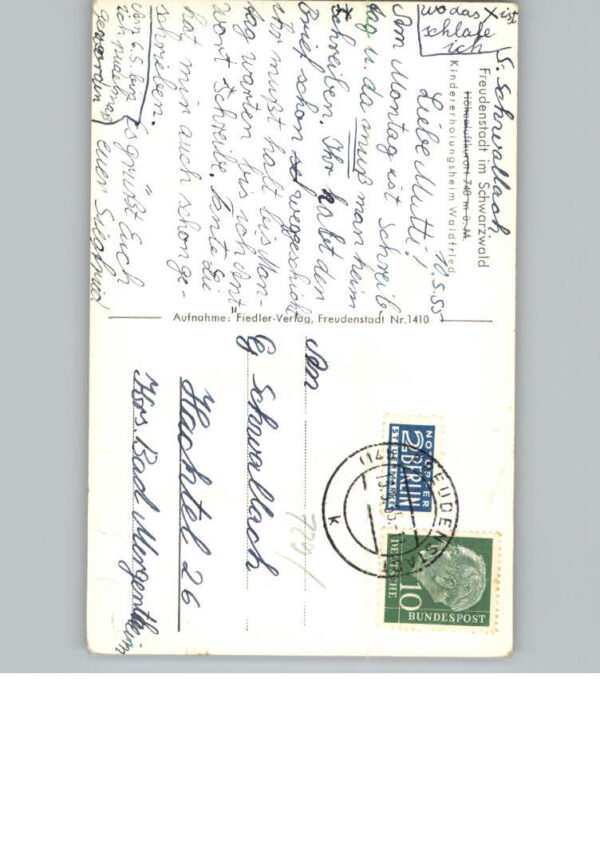 wo das X ist
schlafe
ich
S. Schwallach
Freudenstadt im Schwarzwald
Höhenluftkurort 740 m ü. M.
Kindererholungsheim Waldfried
10.5.55
Liebe Mutti!
Am Montag ist Schreib-
tag u. da muß man heim
schreiben. Ihr habt den
Brief schon weggeschickt
ihr mußt halt bis Mon-
tag warten bis ich Ant-
wort schreibe. Tante
hat mir auch schon ge-
schrieben.
Es grüßt Euch
euer Siegfried
Vom 6.5. bin
ich
geworden
Aufnahme: Fiedler-Verlag, Freudenstadt Nr. 1410
An
G Schwallach
Hachtel 26
Krs. Bad Mergentheim
729/
NOTOPFER
2 BERLIN
STEUERMARKE
FREUDENSTADT
k
10
DEUTSCHE
BUNDESPOST